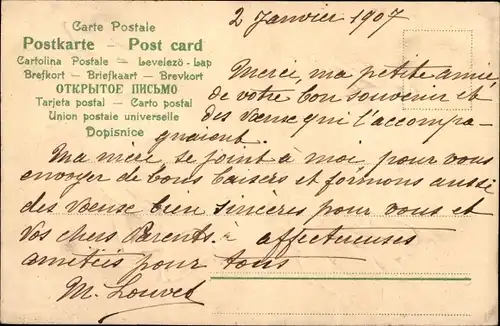 2 Janvier 1907
Carte Postale
Postkarte — Post card
Cartolina Postale — Levelező-Lap
Brefkort — Briefkaart — Brevkort
ОТКРЫТОЕ ПИСЬМО
Tarjeta postal — Carto postal
Union postale universelle
Dopisnice
Merci, ma petite amie
de votre bon souvenir et
des vœux qui l'accompa-
gnaient.
Ma mère, se joint à moi pour vous
envoyer de bons baisers et formons aussi
des vœux bien sincères pour vous et
vos chers Parents. à affectueuses
amitiés pour tous
M. Louvet